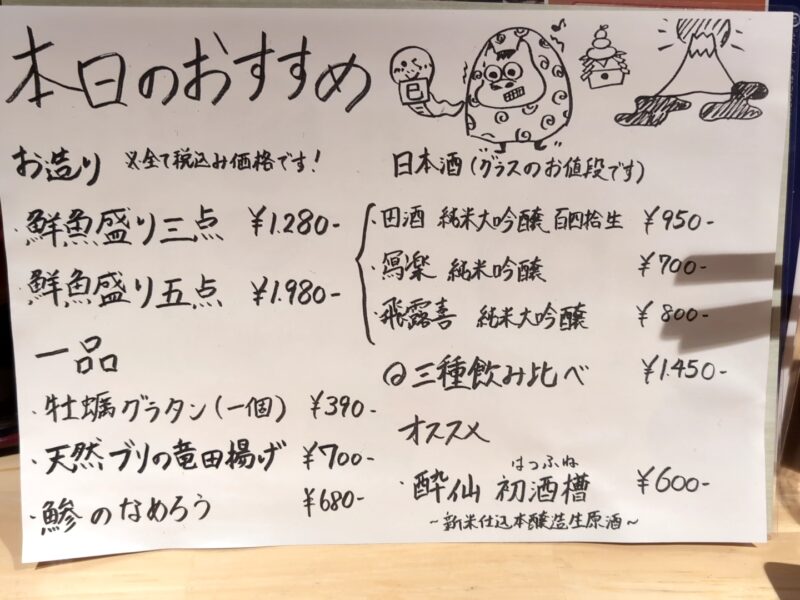 本日のおすすめ
巳
お造り ※全て税込み価格です!
鮮魚盛り三点 ¥1.280-
鮮魚盛り五点 ¥1.980-
一品
・牡蠣グラタン(一個) ¥390-
・天然ブリの竜田揚げ ¥700-
・鯵のなめろう ¥680-
日本酒(グラスのお値段です)
・田酒 純米大吟醸 百四拾生 ¥950-
・冩楽 純米吟醸 ¥700-
・飛露喜 純米大吟醸 ¥800-
◎三種飲み比べ ¥1.450-
オススメ
はつふね
・酔仙 初酒槽 ¥600-
~新米仕込本醸造生原酒~